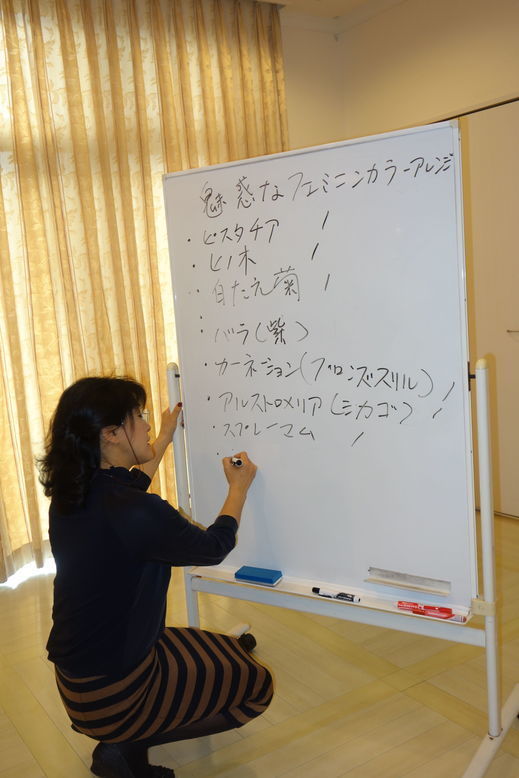 魅惑なフェミニンカラーアレンジ
・ピスタチア /
・ヒノ木 /
・白たえ菊 /
・バラ(紫)
・カーネーション(ブロンズスリル) /
・アルストロメリア(シカゴ) /
・スプレーマム /
・